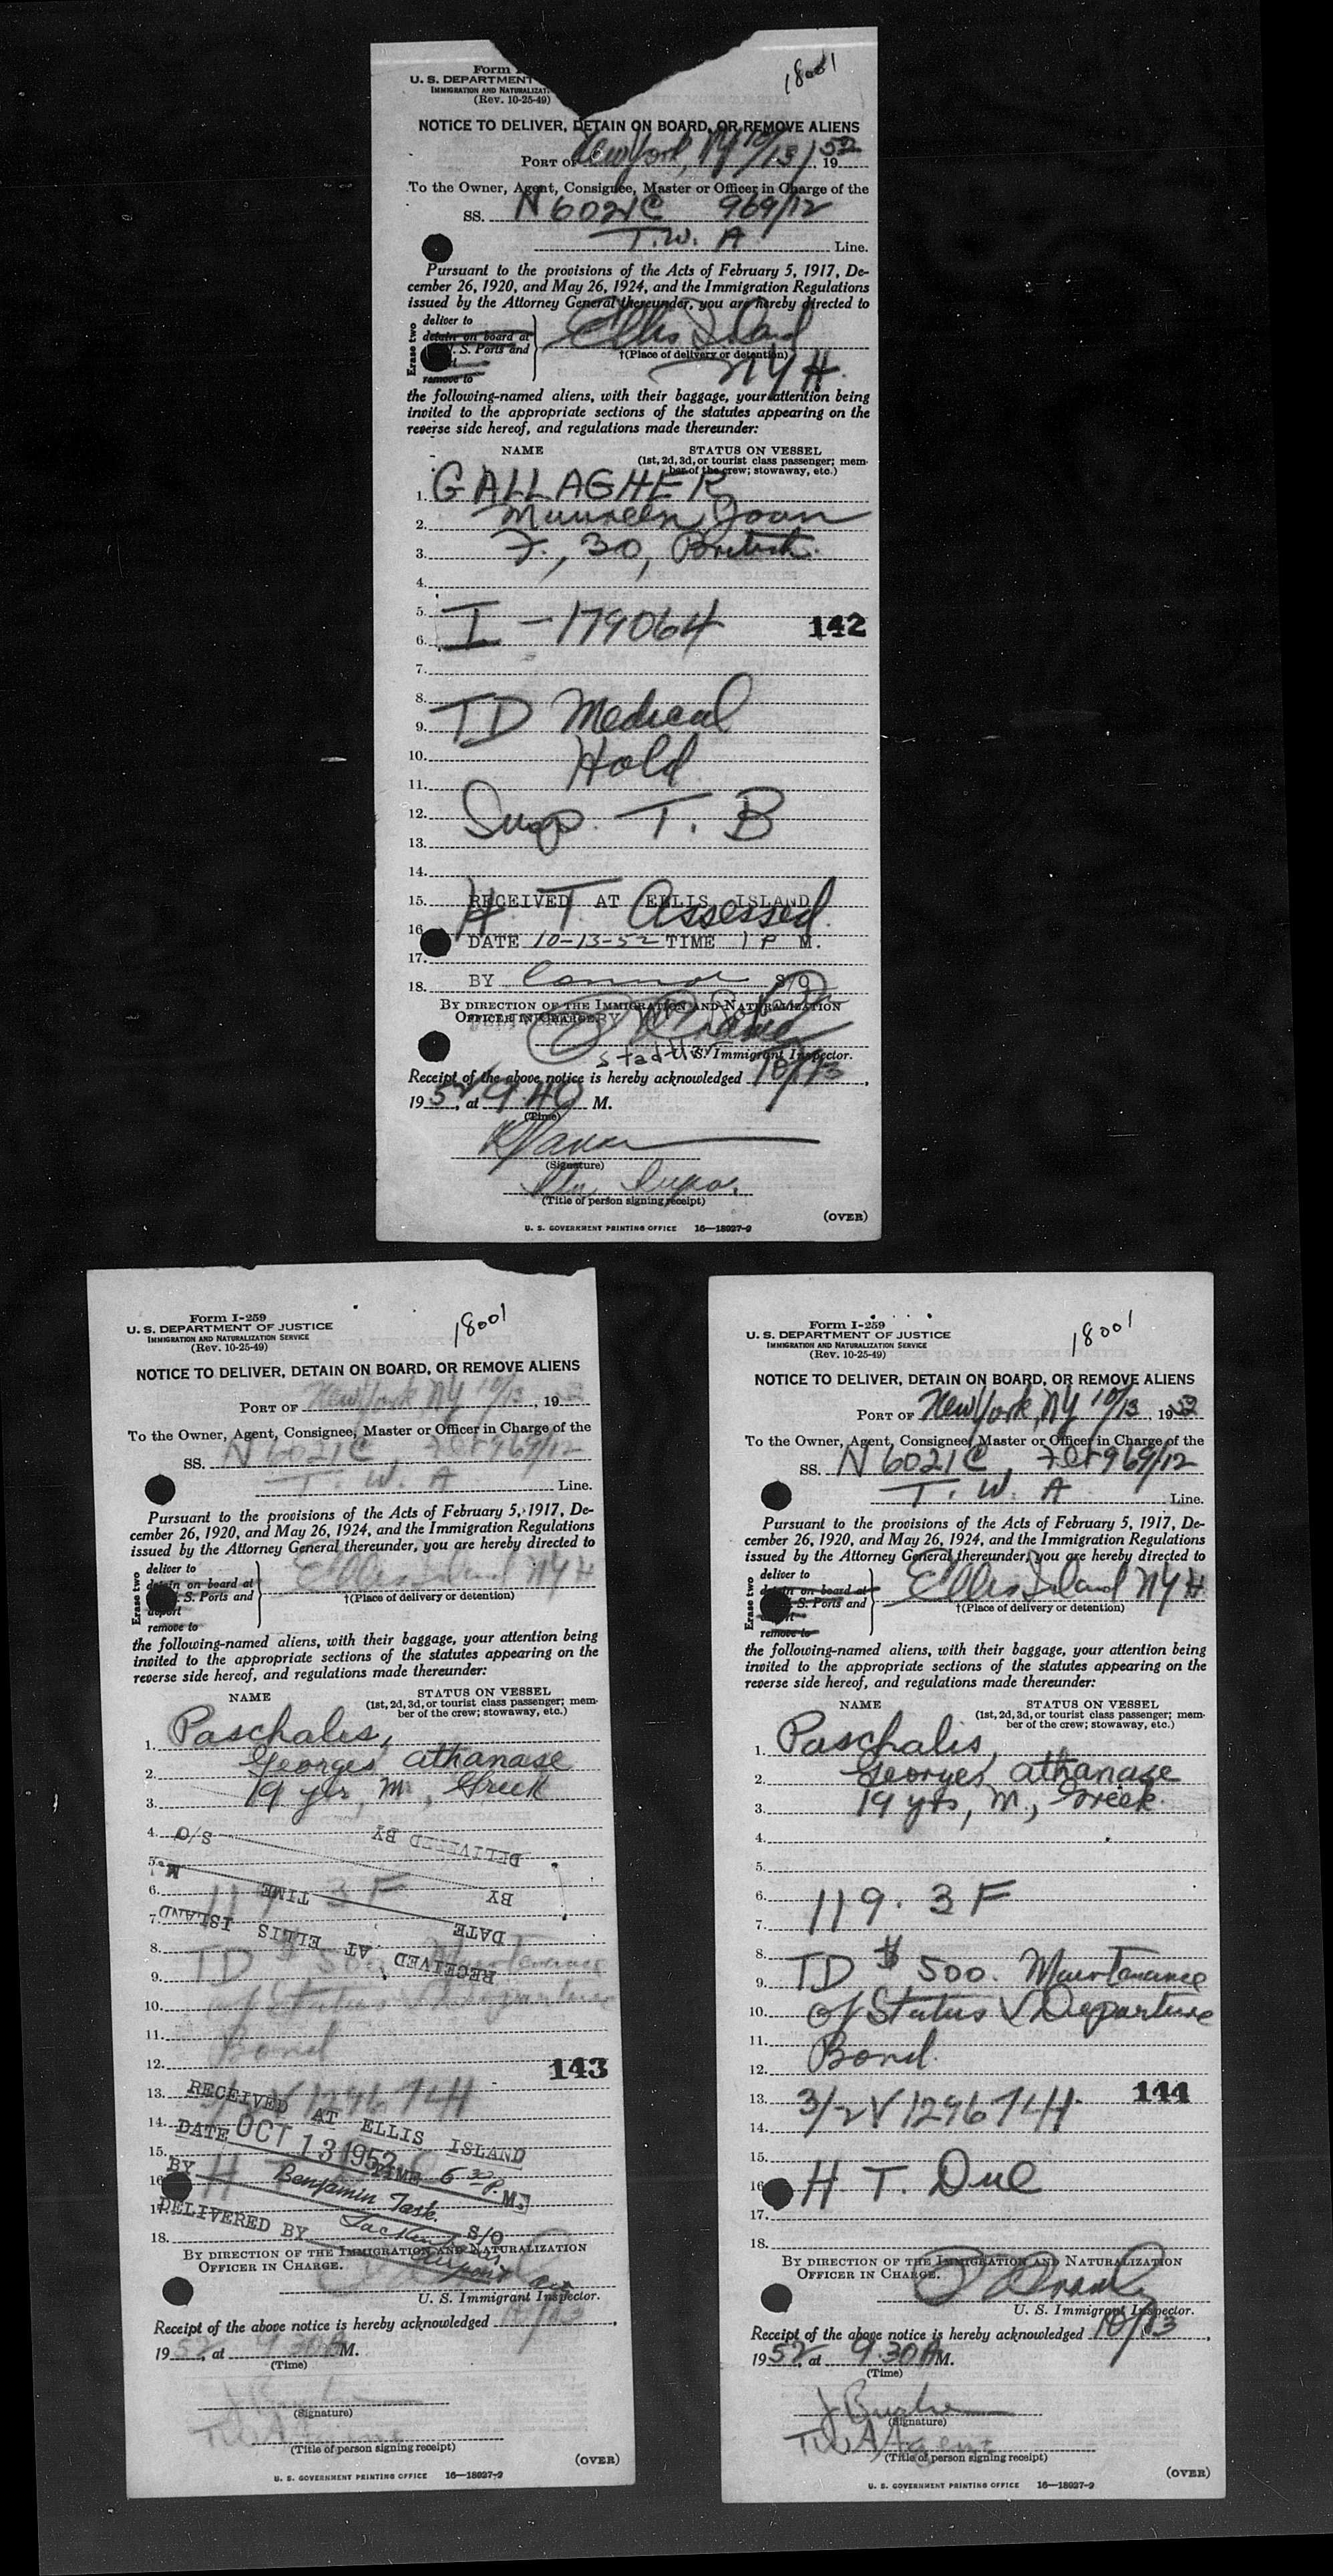 Form
U. S. DEPARTMENT
IMMIGRATION AND NATURALIZAT
(Rev. 10-25-49)
18001
NOTICE TO DELIVER, DETAIN ON BOARD, OR REMOVE ALIENS
PORT OF New York, NY 10/13/ 1952
To the Owner, Agent, Consignee, Master or Officer in Charge of the
SS. N 6021C 969/12
T. W. A Line.
Pursuant to the provisions of the Acts of February 5, 1917, De-
cember 26, 1920, and May 26, 1924, and the Immigration Regulations
issued by the Attorney General thereunder, you are hereby directed to
Erase two
deliver to
detain on board at
S. Ports and
remove to
Ellis Island
†(Place of delivery or detention)
NYH.
the following-named aliens, with their baggage, your attention being
invited to the appropriate sections of the statutes appearing on the
reverse side hereof, and regulations made thereunder:
NAME STATUS ON VESSEL
(1st, 2d, 3d, or tourist class passenger; mem-
ber of the crew; stowaway, etc.)
1. GALLAGHER
2. Maureen Joan
3. F., 30, British.
4.
5.
6. I-179064 142
7.
8.
9. TD Medical
10. Hold
11.
12. Susp. T. B
13.
14.
15. RECEIVED AT ELLIS ISLAND
H. T. Assessed.
16. DATE 10-13-52 TIME 1 P M.
17.
18. BY Connor S/O
BY DIRECTION OF THE IMMIGRATION AND NATURALIZATION
OFFICER IN CHARGE.
U. S. Immigrant Inspector.
Receipt of the above notice is hereby acknowledged 10/13,
1952, at 9:40 M.
(Time)
(Signature)
(Title of person signing receipt)
(OVER)
U. S. GOVERNMENT PRINTING OFFICE 16—18927-9
Form I-259
U. S. DEPARTMENT OF JUSTICE
IMMIGRATION AND NATURALIZATION SERVICE
(Rev. 10-25-49)
18001
NOTICE TO DELIVER, DETAIN ON BOARD, OR REMOVE ALIENS
PORT OF New York NY 10/13, 1952
To the Owner, Agent, Consignee, Master or Officer in Charge of the
SS. N 6021C Flt 969/12
T. W. A Line.
Pursuant to the provisions of the Acts of February 5, 1917, De-
cember 26, 1920, and May 26, 1924, and the Immigration Regulations
issued by the Attorney General thereunder, you are hereby directed to
Erase two
deliver to
detain on board at
S. Ports and
remove to
Ellis Island NYH
†(Place of delivery or detention)
the following-named aliens, with their baggage, your attention being
invited to the appropriate sections of the statutes appearing on the
reverse side hereof, and regulations made thereunder:
NAME STATUS ON VESSEL
(1st, 2d, 3d, or tourist class passenger; mem-
ber of the crew; stowaway, etc.)
1. Paschalis,
2. Georges Athanase
3. 19 yrs, M, Greek
4. S/O DELIVERED BY
5. M.
6. 119. 3 F TIME BY
7. DATE
RECEIVED AT ELLIS ISLAND
8.
9. TD $500. Maintenance
10. of Status & Departure
11. Bond
12.
143
13. 3/2 V 1296744
14. RECEIVED AT ELLIS ISLAND
15. DATE OCT 13 1952 TIME 6 30 P. M.
16. H T
BY Benjamin Task. S/O
17. DELIVERED BY
18.
BY DIRECTION OF THE IMMIGRATION AND NATURALIZATION
OFFICER IN CHARGE.
U. S. Immigrant Inspector.
Receipt of the above notice is hereby acknowledged 10/13,
1952, at 9.30A M.
(Time)
(Signature)
(Title of person signing receipt)
(OVER)
U. S. GOVERNMENT PRINTING OFFICE 16—18927-9
Form I-259
U. S. DEPARTMENT OF JUSTICE
IMMIGRATION AND NATURALIZATION SERVICE
(Rev. 10-25-49)
18001
NOTICE TO DELIVER, DETAIN ON BOARD, OR REMOVE ALIENS
PORT OF New York, NY 10/13 1952
To the Owner, Agent, Consignee, Master or Officer in Charge of the
SS. N 6021C, Flt 969/12
T. W. A Line.
Pursuant to the provisions of the Acts of February 5, 1917, De-
cember 26, 1920, and May 26, 1924, and the Immigration Regulations
issued by the Attorney General thereunder, you are hereby directed to
Erase two
deliver to
detain on board at
S. Ports and
remove to
Ellis Island NYH
†(Place of delivery or detention)
the following-named aliens, with their baggage, your attention being
invited to the appropriate sections of the statutes appearing on the
reverse side hereof, and regulations made thereunder:
NAME STATUS ON VESSEL
(1st, 2d, 3d, or tourist class passenger; mem-
ber of the crew; stowaway, etc.)
1. Paschalis,
2. Georges Athanase
3. 19 yrs, M., Greek.
4.
5.
6. 119. 3 F
7.
8.
9. TD $500. Maintenance
10. of Status & Departure
11. Bond.
12.
13. 3/2 V 1296744. 144
14.
15.
16. H. T. Due
17.
18.
BY DIRECTION OF THE IMMIGRATION AND NATURALIZATION
OFFICER IN CHARGE.
U. S. Immigrant Inspector.
Receipt of the above notice is hereby acknowledged 10/13,
1952, at 9.30A M.
(Time)
(Signature)
TWA Agent
(Title of person signing receipt)
(OVER)
U. S. GOVERNMENT PRINTING OFFICE 16—18927-9